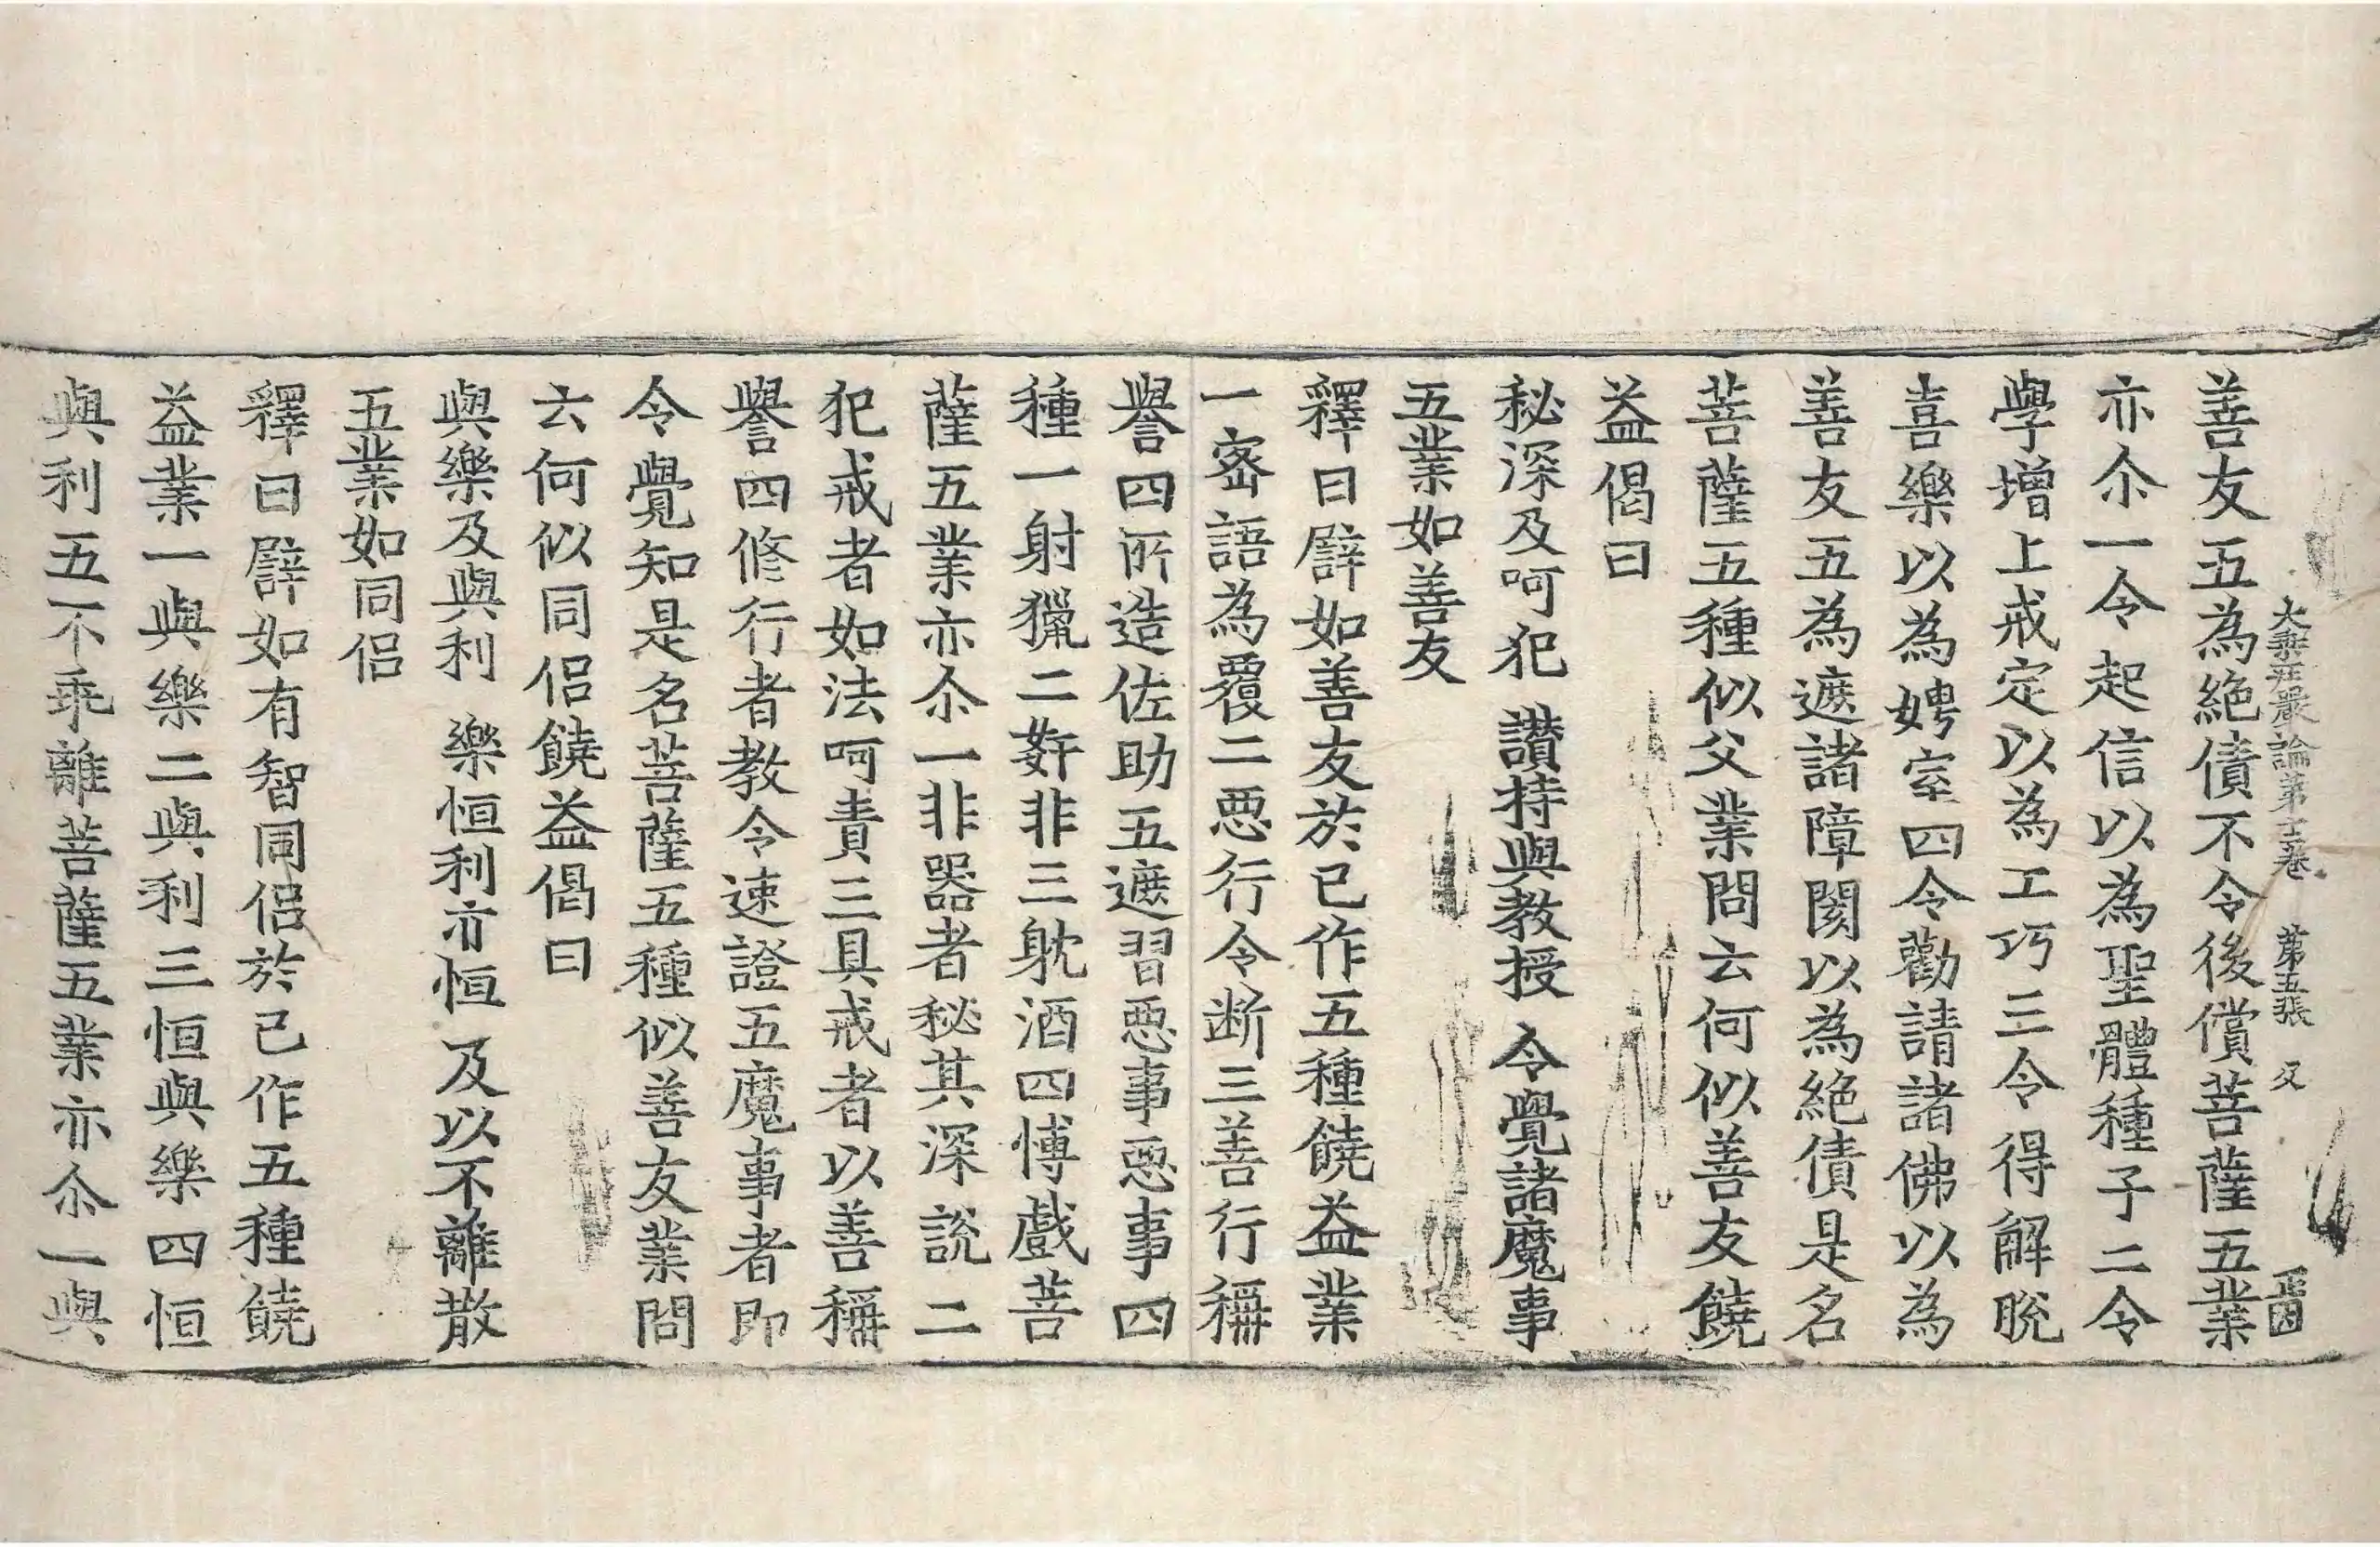 大乘莊嚴論第十三卷 第五張 又
善友五為絶債不令後償菩薩五業
亦尒一令起信以為聖體種子二令
學增上戒定以為工巧三令得解脫
喜樂以為娉室四令勸請諸佛以為
善友五為遮諸障閡以為絶債是名
菩薩五種似父業問云何似善友饒
益偈曰
秘深及呵犯 讃持與教授 令覺諸魔事
五業如善友
釋曰譬如善友於已作五種饒益業
一密語為覆二惡行令断三善行稱
譽四所造佐助五遮習惡事惡事四
種一射獵二姧非三躭酒四博戲菩
薩五業亦尒一非器者秘其深說二
犯戒者如法呵責三具戒者以善稱
譽四修行者教令速證五魔事者即
令覺知是名菩薩五種似善友業問
云何似同侶饒益偈曰
與樂及與利 樂恒利亦恒 及以不離散
五業如同侶
釋曰譬如有智同侶於已作五種饒
益業一與樂二與利三恒與樂四恒
與利五不乖離菩薩五業亦尒一與